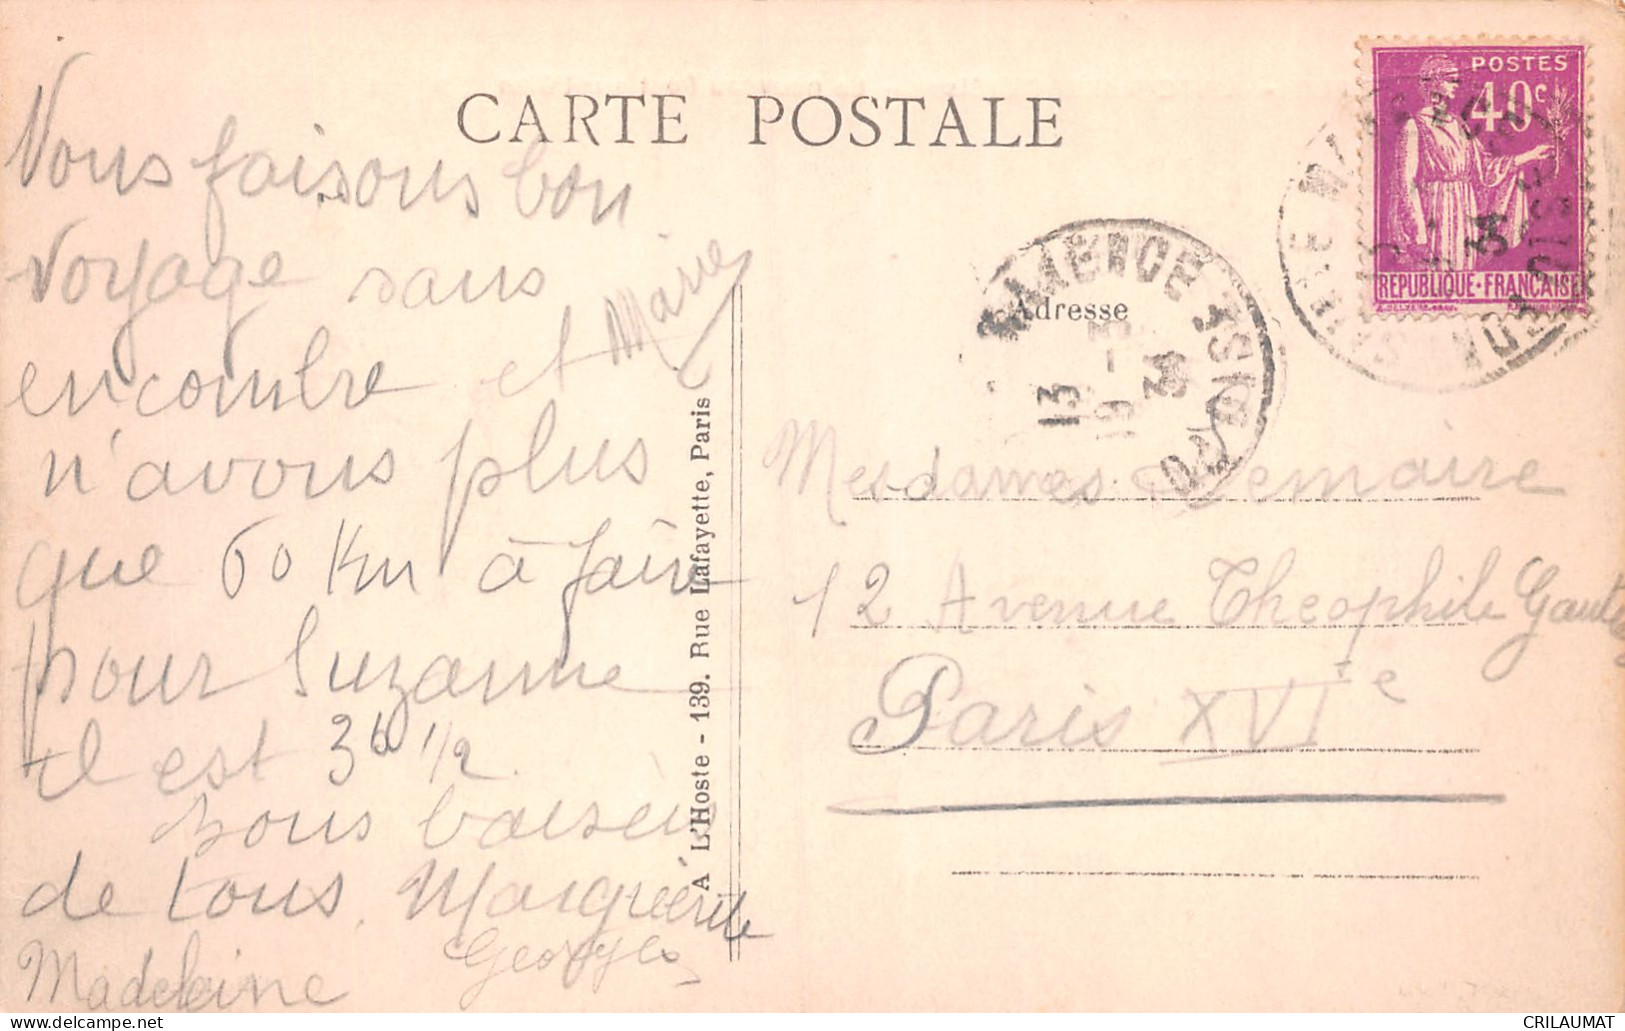 CARTE POSTALE
Vous faisons bon
voyage sans
encombre et
n'avons plus
que 60 Km à faire
pour Suzanne
il est 3h 1/2
bons baisers
de tous. Marguerite
Georges
Madeleine
Marie
A L'Hoste - 139. Rue Lafayette, Paris
POSTES
40c
REPUBLIQUE·FRANÇAISE
Adresse
VALENCE
13
19 34
Mesdames Lemaire
12 Avenue Theophile Gautier
Paris XVIe
CRILAUMAT